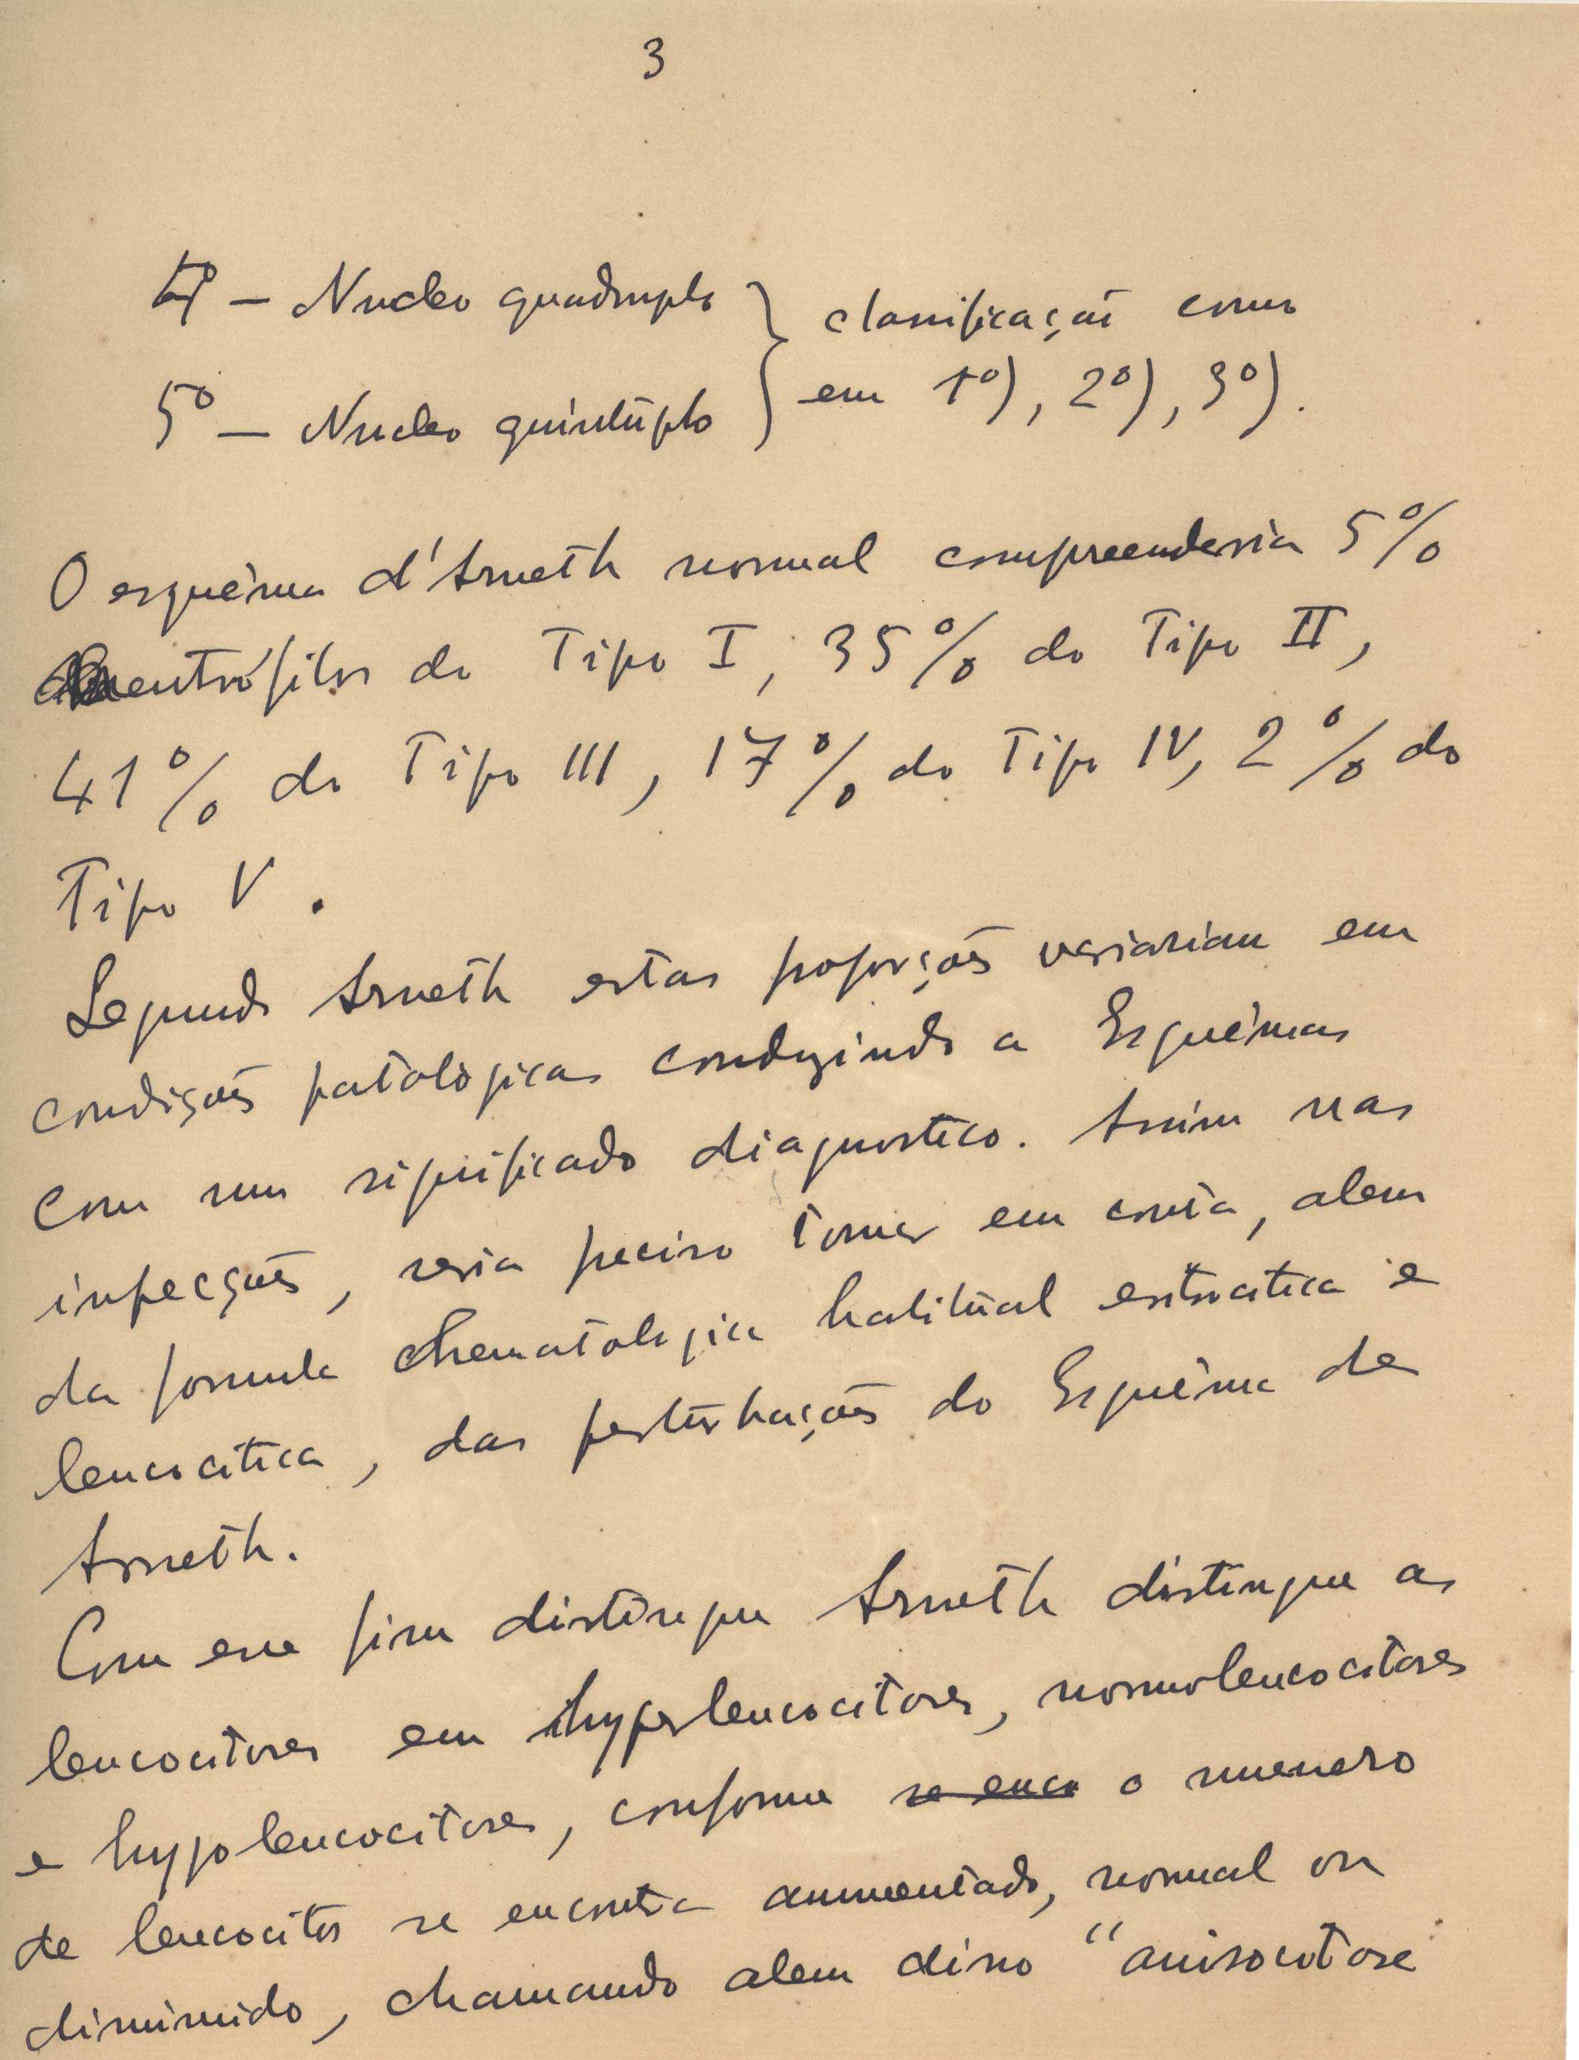 3
4º — Nucleo quadruplo } classificação como
5º — Nucleo quintúplo } em 1º), 2º), 3º).
O esquêma d'Arneth normal compreenderia 5%
neutrófilos do Tipo I, 35% do Tipo II,
41% do Tipo III, 17% do Tipo IV, 2% do
Tipo V.
Segundo Arneth estas proporções variariam em
condições patològicas conduzindo a Esquêmas
com um significado diagnostico. Assim nas
infecções, seria preciso tomar em conta, alem
da formula hematologica habitual eritrocitica e
leucocitica, das pertúrbações do Esquêma de
Arneth.
Com esse fim distingue Arneth distingue as
leucocitoses em hyperleucocitoses, normoleucocitoses
e hypoleucocitoses, conforme se enco o numero
de leucocitos se encontra aumentado, normal ou
diminuido, chamando alem disso "anisocitose